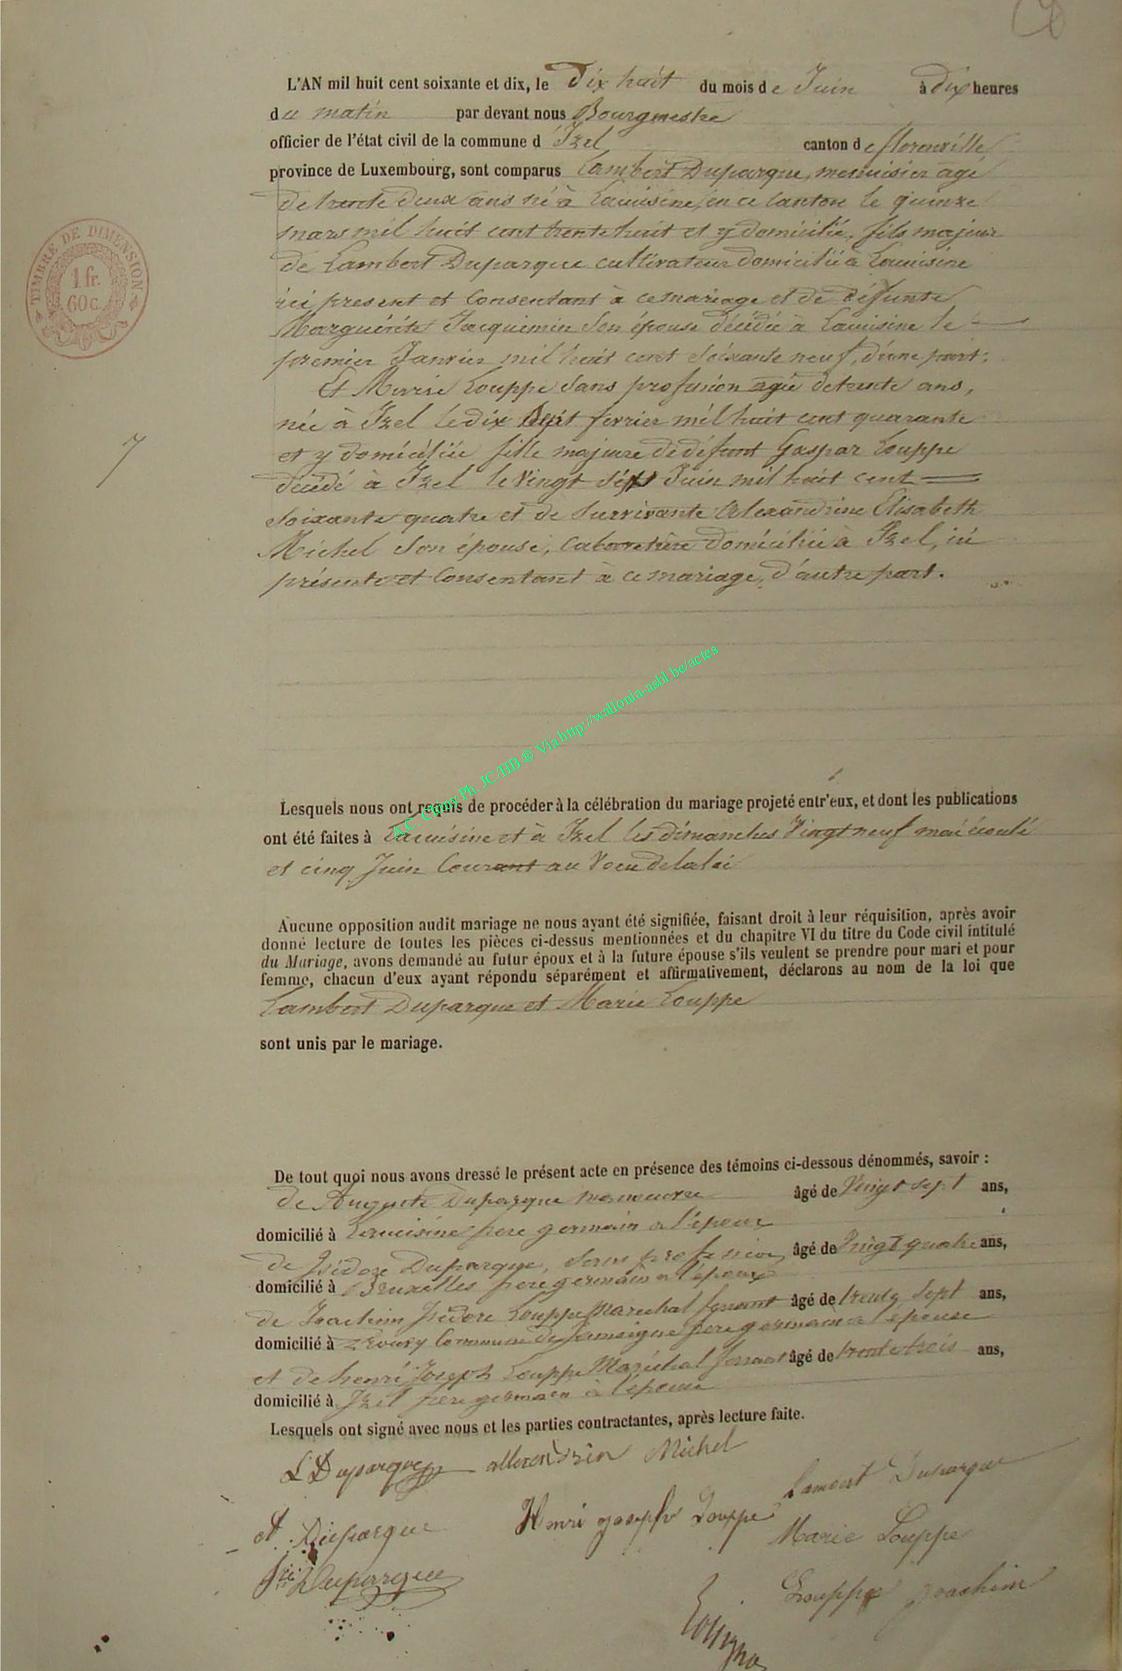 L'AN mil huit cent soixante et dix, le Dix huit du mois de Juin à dix heures
du matin par devant nous Bourgmestre
officier de l'état civil de la commune d'Izel canton de florenville
province de Luxembourg, sont comparus Lambert Duparque, menuisier agé
de trente deux ans né à Lacuisine, en ce Canton le quinze
mars mil huit cent trente huit et y domicilié, fils majeur
de Lambert Duparque cultivateur domicilié à Lacuisine
ici present et Consentant à ce mariage et de défunte
Marguérite Jacquemin Son épouse décédée à Lacuisine le
premier Janvier mil huit cent Soixante neuf, d'une part;
Et Marie Louppe Sans profession agée de trente ans,
née à Izel le dix Sept fevrier mil huit cent quarante
et y domiciliée fille majeure de défunt Gaspar Louppe
décédé à Izel le Vingt Sept Juin mil huit cent
Soixante quatre et de Survivante Alexandrine Elisabeth
Michel Son épouse, Cabaretière domiciliée à Izel, ici
présente et Consentant à ce mariage, d'autre part.
7
TIMBRE DE DIMENSION
1 fr.
60 c.
Via http://wallonia-asbl.be/actes
Lesquels nous ont requis de procéder à la célébration du mariage projeté entr'eux, et dont les publications
ont été faites à Lacuisine et à Izel les dimanches Vingt neuf mai écoulé
et cinq Juin Courant au Voeu de la loi
Aucune opposition audit mariage ne nous ayant été signifiée, faisant droit à leur réquisition, après avoir
donné lecture de toutes les pièces ci-dessus mentionnées et du chapitre VI du titre du Code civil intitulé
du Mariage, avons demandé au futur époux et à la future épouse s'ils veulent se prendre pour mari et pour
femme, chacun d'eux ayant répondu séparément et affirmativement, déclarons au nom de la loi que
Lambert Duparque et Marie Louppe
sont unis par le mariage.
De tout quoi nous avons dressé le présent acte en présence des témoins ci-dessous dénommés, savoir :
de Auguste Duparque manoeuvre âgé de Vingt sept ans,
domicilié à Lacuisine frere germain a l'époux
de Isidore Duparque, Sans profession, âgé de Vingt quatre ans,
domicilié à Bruxelles frere germain a l'époux
de Joachim Isidore Louppe Maréchal ferrant âgé de trente Sept ans,
domicilié à Commune de Jamoigne frere germain à l'épouse
et de henri Joseph Louppe Maréchal ferrant âgé de trente trois ans,
domicilié à Izel frere germain à l'épouse
Lesquels ont signé avec nous et les parties contractantes, après lecture faite.
L Duparque Michel Lambert Duparque
A. Duparque Henri joseph Louppe Marie Louppe
Duparque Louppe joachim